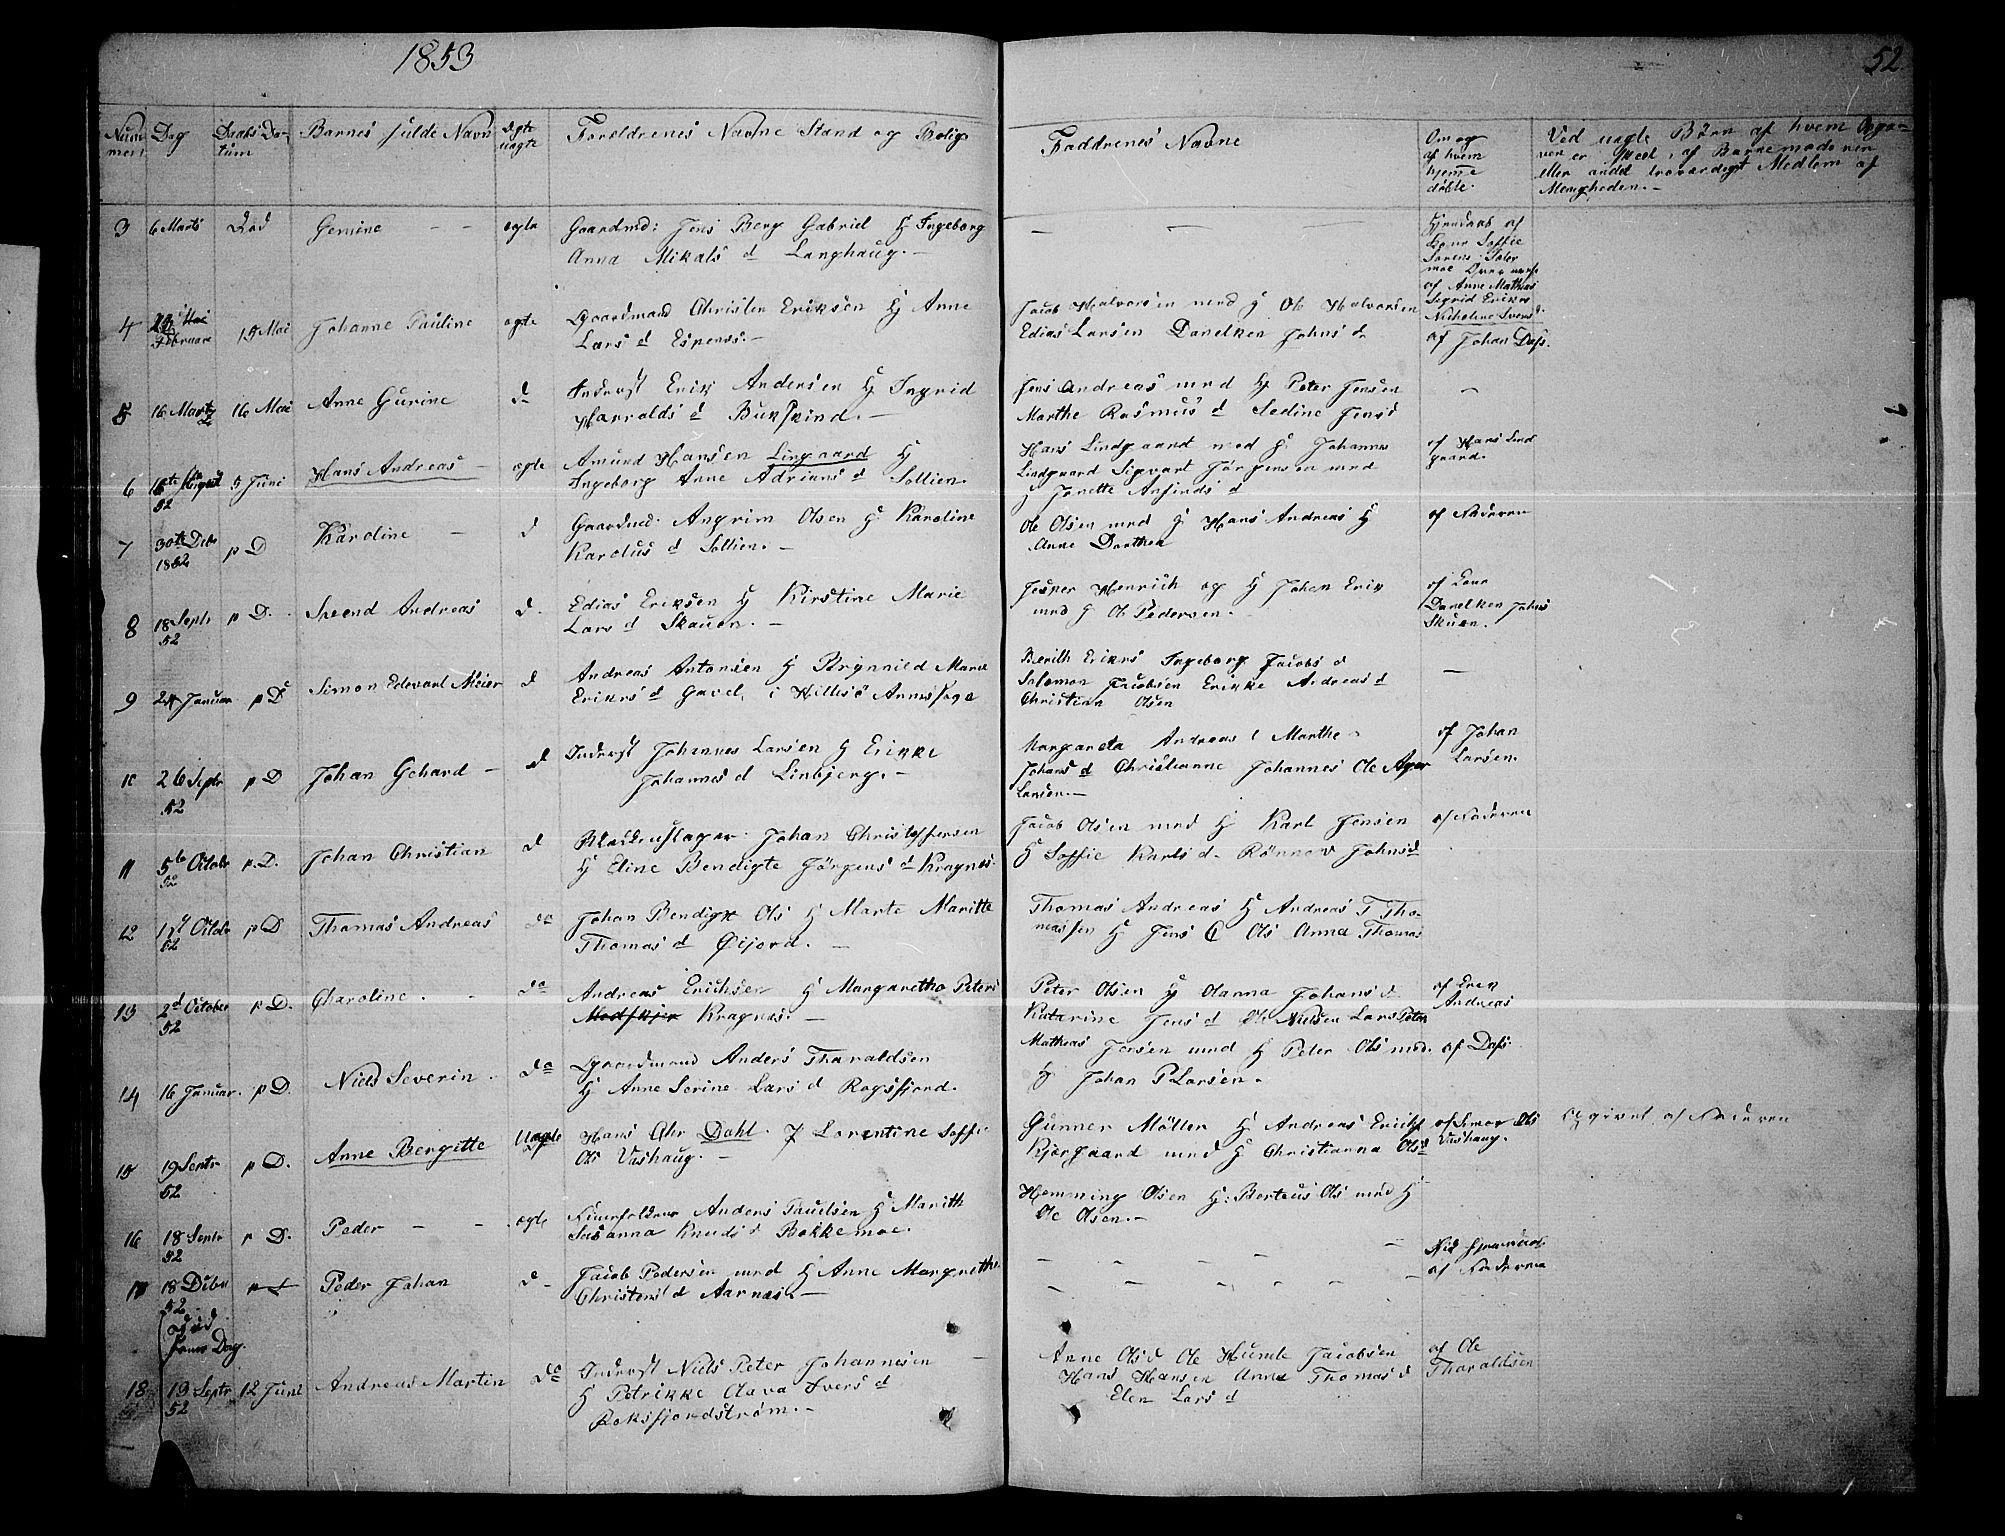 1853
52
Num
mer
Dag
Daabs Da-
tum
Barnes fulde Navn
Ægte
uægte
Foreldrenes Navne Stand og Bolig
Faddrenes Navne
Om og
af hvem
hjemme
døbte.
Ved uægte Børn af hvem Opga-
ven er skeet, af Barnemoderen
eller andet troværdigt Medlem af
Menigheden.-
3 6 Marts Død Gemine - - ægte Gaardmd: Jens Berg Gabriel H Ingeborg
Anna Mikals d Langhaug.-
af
Soffie
af Anne Mathias
Sigrid Eriks
Nicholine Ivers d.
4 Februar 15 Mai Johanne Pauline ægte Gaardmand Christen Eriksen H Anne
Lars d Espenes.-
Jacob Halvorsen med H Ole Halvorsen
Edias Larsen Danelken Johns d.
af Johan Dass.
5 16 Marts 16 Mai Anne Gurine do Inderst Erik Andersen H Ingrid
Harralds d Bukskind.-
Jens Andreas med H Peter Jensen
Marthe Rasmus d Sedine Jens d
6 August 52 5 Juni Hans Andreas - ægte Amund Hansen Lingaard H
Ingeborg Anne Adrians d Sollien.
Hans Lindgaard med H Johannes
Lindgaard Sigvart Jørgensen med
H Jonette Arfinds d
af Hans Lind
gaard.
7 30te Debr 1852 p D Karoline - d Gaardmd. Angrim Olsen H Karoline
Karolus d Sollien.-
Ole Olsen med H Hans Andreas H
Anne Dorthea
af Faderen
8 18 Septr 52 p D. Sveend Andreas d. Edias Eriksen H Kirstine Marie
Lars d Skauen.-
Jesper Henrich og H Johan Erik
med H Ole Pedersen.
af
Danelken Johns
Skuen.
9 24 Januar p D Simon Edevart Meier d Andreas Antonsen H Brynnild Marie
Eriks d Gavel i Hillesø Annex Sogn
Berith Eriks Ingeborg Jacobs d
Solomon Jacobsen Erikke Andreas d
Christian Olsen
10 26 Septr 52 p D Johan Gehard - d Inderst Johannes Larsen H Erikke
Johannes d Linbjerg.-
Margareta Andreas Marthe
Johans d Christianne Johannes Ole Ager
Larsen.-
af Johan
Larsen.
11 5te Octobr 52 p.D. Johan Christian d Johan Christoffersen
H Eline Bendigte Jørgens d Kragnes.
Jacob Olsen med H Karl Jensen
H Soffie Karls d. Rønnov Johns d
af Faderen
12 Octobr 52 p D Thomas Andreas do Johan Bendigt Ols H Marte Maritte
Thomas d Øijord.-
Thomas Andreas H Andreas T Tho-
massen H Jens C Ols Anna Thomas
13 2d October 52 p D. Charoline. - do Andreas Erichsen H Margaretha Peters
Kragnes.-
Peter Olsen H Olanna Johans d.
Katarine Jens d Ole Nielsen Lars Peter
af
Andreas
14 16 Januar. p D. Niels Severin. do Gaardmand Anders Tharaldsen
H Anne Serine Lars d Rogsfjord.
Mathias Jensen med H Peter Ols med.
H Johan P Larsen.
af Dass.
15 19 Septr 52 p D. Anne Bergitte Uægte Hans Chr Dahl. P Lorentine Soffie
Ols Vashaug.-
Gunner Møller H Andreas Erichs
Kjærgaard med H Christianna Ols d
af Simon Ols
Vashaug.
Opgivet af Faderen
16 18 Septr 52 p D. Peder - - ægte Anders Paulsen H Marith
Susanna Knuds d Bakkemoe.
Hemming Olsen H: Berteus Ols med H
Ole Olsen.-
17 18 Debr 52 Peder Johan d- Jacob Pedersen med H Anne Margrethe
Christens d Aarnes.-
af Faderen
død
samme Dag.
18 19 Septr 52 12 Juni Andreas Martin do Inderst Niels Peter Johannesen
H Petrikke Olava Ivers d
Roksfjordstrøm.-
Anne Ols d Ole Hunde Jacobsen
Hans Hansen Anna Thomas d
Elen Lars d
af Ole
Tharaldsen